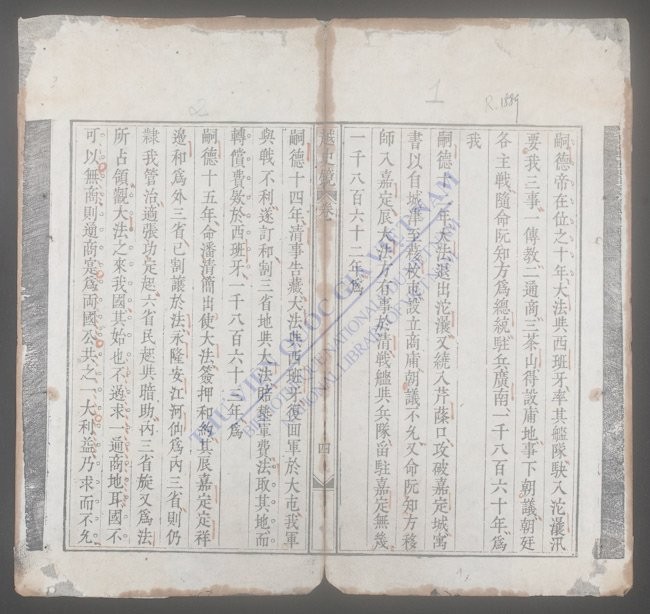 1
R.1589
嗣德帝在位之十年、大法與西班牙率其艦隊、駛入沱㶞汛
要我三事、一傳教、二通商、三茶山得設庸地、事下朝議、朝廷
各主戰、隨命阮知方爲總統、駐兵廣南、一千八百六十年、爲
我
嗣德十二年、大法退出沱㶞、又繞入芹蒢口、攻破嘉定城、寓
書以自城 至 校屯設立商庸、朝議不允、又命阮知方移
師入嘉定、辰大法方有事於清、戰艦與兵隊留駐嘉定無幾
一千八百六十二年爲
越史鏡 卷
四
嗣德十四年、清事告蕆、大法與西班牙復回軍於大屯、我軍
與戰不利、遂訂和、割三省地與大法賠 軍費、法取其地、而
轉償費欵於西班牙、一千八百六十三年、爲
嗣德十五年、命潘清簡出使大法、簽押和約、其辰嘉定定祥
邊和爲外三省、已割讓於法、永隆安江河仙爲内三省、則仍
隷我管治、適張功定起、六省民起與賠助、内三省旋又爲法
所占領、觀大法之來我國、其始也不過求一通商地耳、國不
可以無商、則通商寔爲両國公共之一大利益、乃求而不允
THƯ VIỆN QUỐC GIA VIỆT NAM
BIBLIOTHÈQUE NATIONALE DU VIETNAM
NATIONAL LIBRARY OF VIETNAM